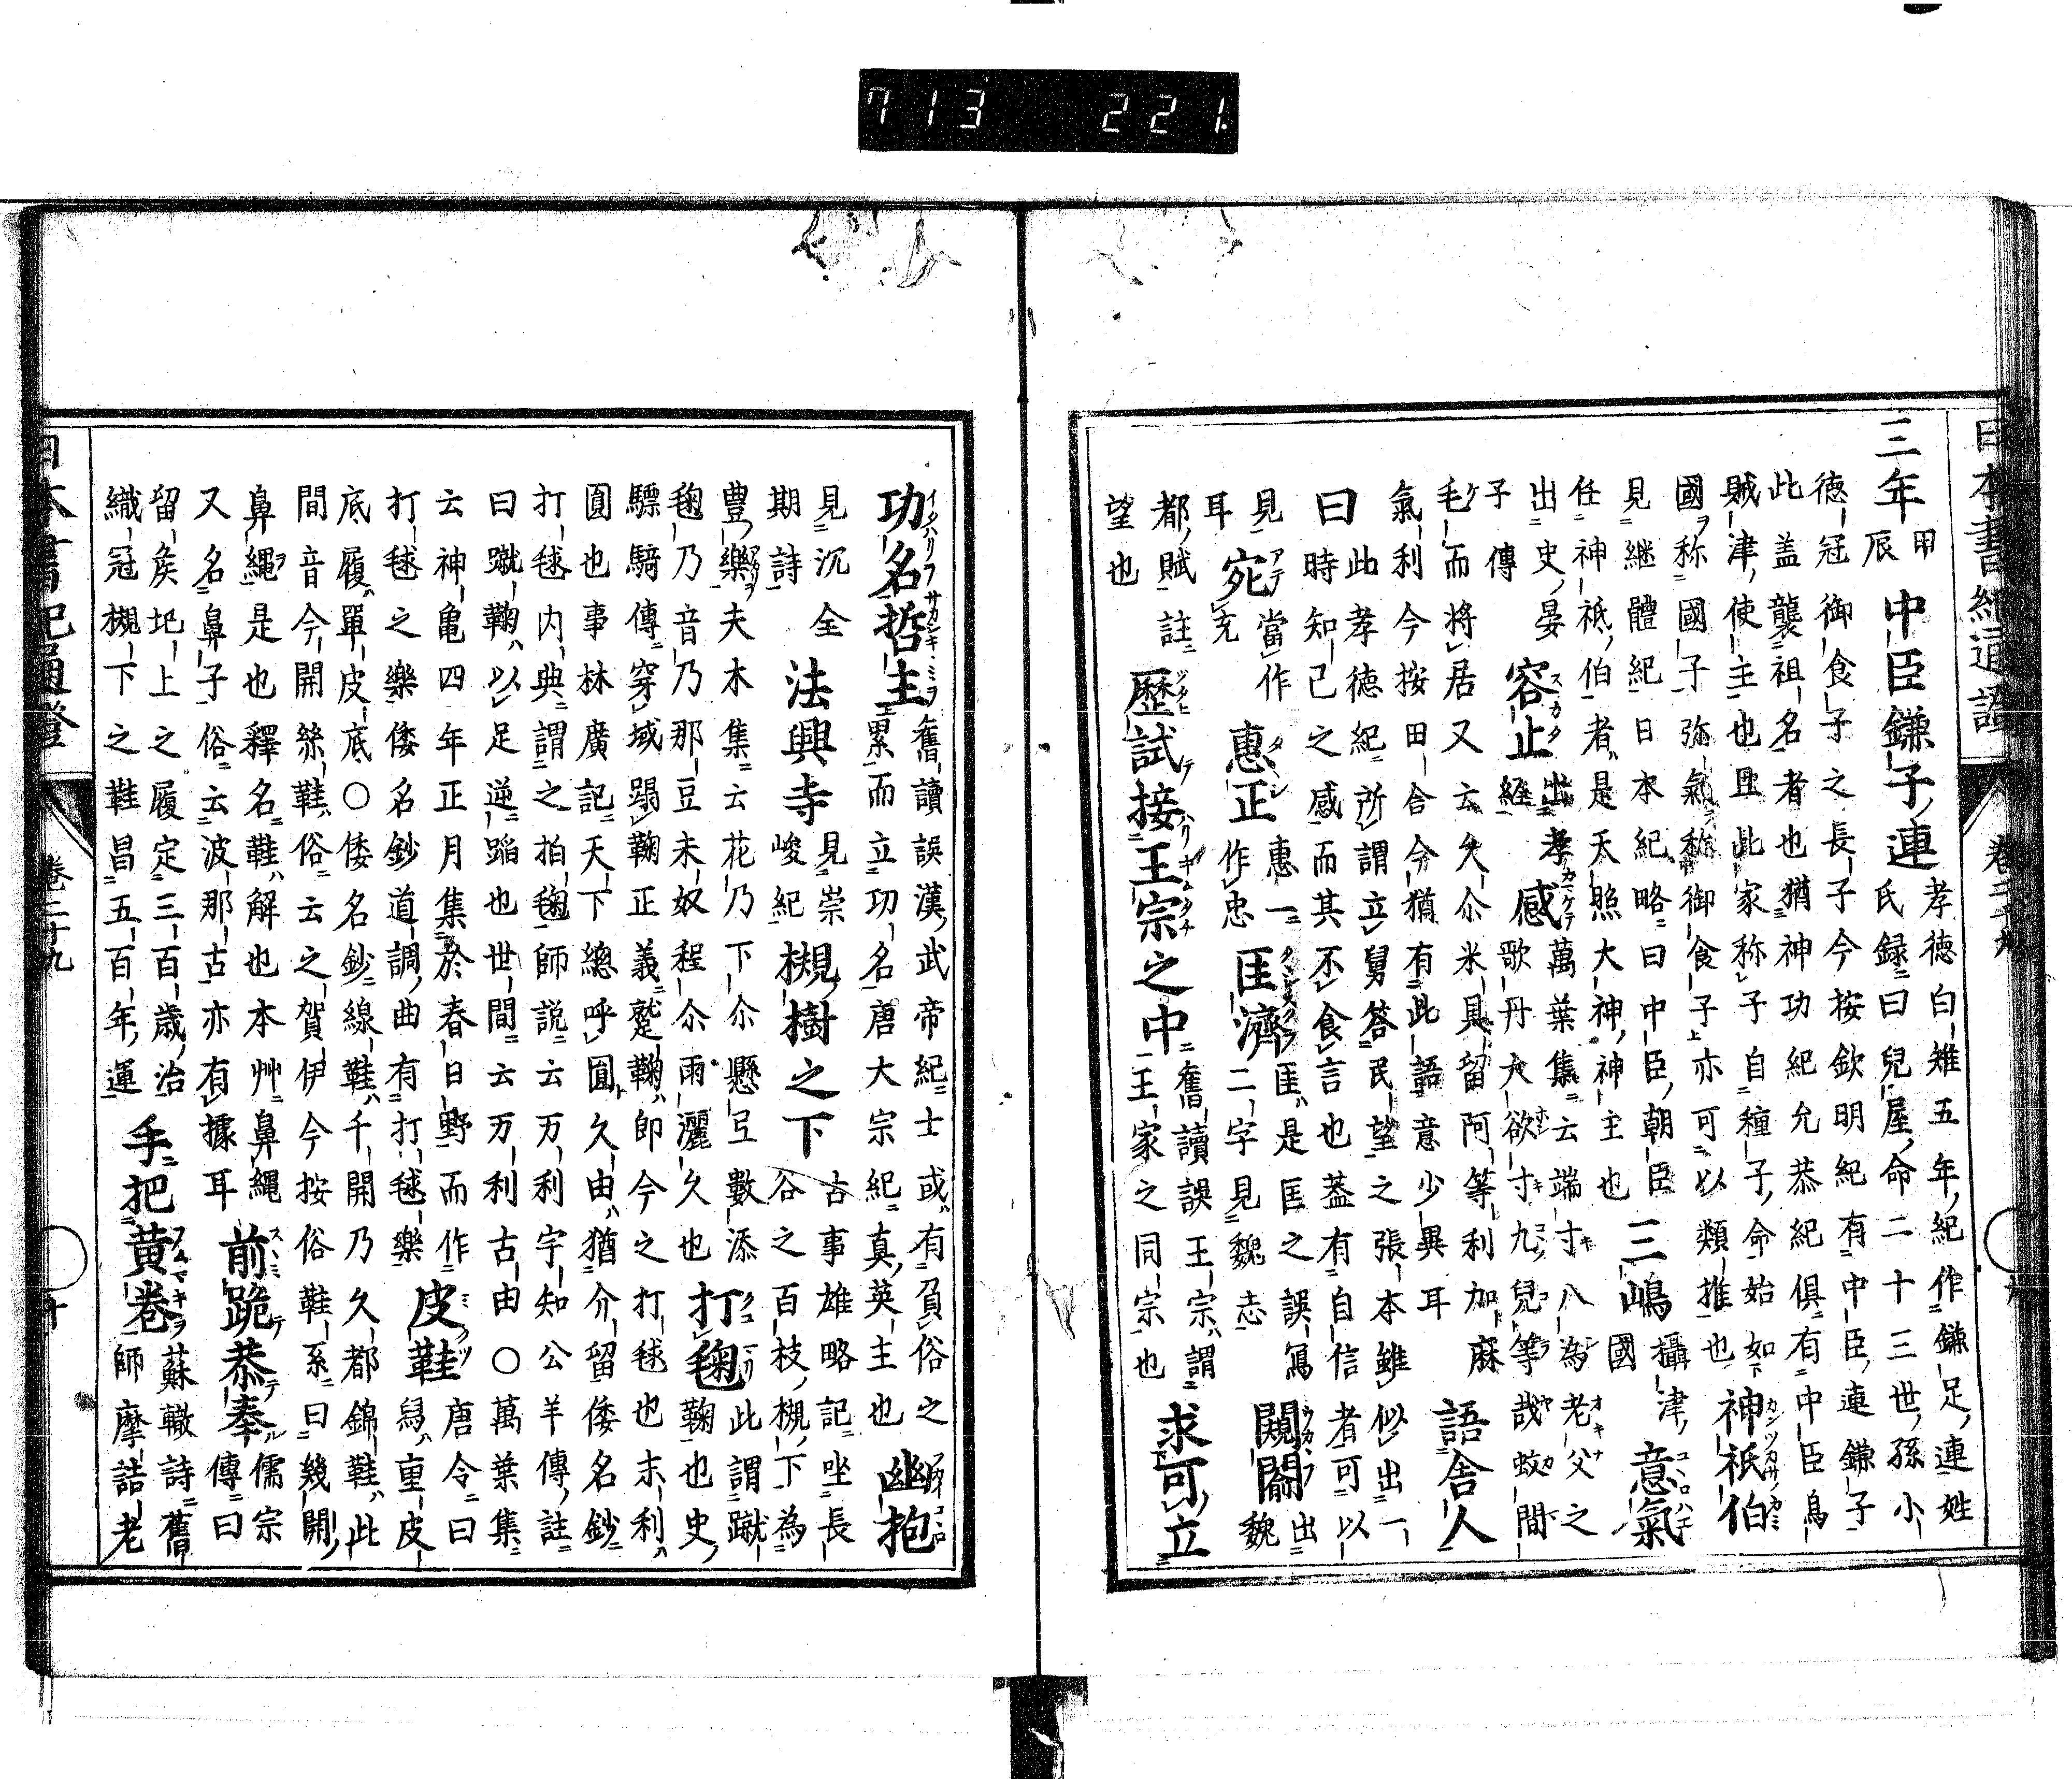 713 221.
日本書紀通證 卷二十九
三年甲辰中臣鎌子連孝德白雉五年紀作鎌足連姓
氏録曰兒屋命二十三世孫小
德冠御食子之長子今按欽明紀有中臣連鎌子
此盖襲祖名者也猶神功紀允恭紀俱有中臣烏
賊津使主也且此家称子自種子命始如
國称國子弥氣称御食子上亦可以類推也神祇伯
見継體紀日本紀略曰中臣朝臣三嶋攝津國意氣
任神祇伯者是天照大神神主也
出史晏子傳容止出孝經感萬葉集云端寸八為老父之歌丹大欲寸九兒等哉蚊間
毛而將居又云久尒米具留阿等利加麻語舍人
氣利今按田舍今猶有此語意少異耳
曰此孝德紀所謂立舅答民望之張本雖似出一
時知己之感而其不食言也蓋有自信者可以
見耳宛當作充惠正惠一作忠匡濟匡是匡之誤寫二字見魏志闚閣出魏
都賦註歷試接王宗之中舊讀誤王宗謂王家之同宗也求可立
望也
功名哲主舊讀誤漢武帝紀士或有負俗之累而立功名唐大宗紀真英主也幽抱
見沉全期詩法興寺見崇峻紀槻樹之下古事雄略記坐長谷之百枝槻下為
豊樂夫木集云花乃下尒懸弖數添打毱此謂蹴鞠也史
毱乃音乃那豆未奴程尒雨灑久也
驃騎傳穿域蹋鞠正義蹵鞠即今之打毬也末利
圓也事林廣記天下總呼圓久由猶介留倭名鈔
打毬内典謂之拍毱師説云万利宇知公羊傳註
曰蹴鞠以足逆蹈也世間云万利古由〇萬葉集
云神亀四年正月集於春日野而作打毬之樂倭名鈔道調曲有打毬樂皮鞋唐令曰舄重皮
底履單皮底〇倭名鈔線鞋千開乃久都錦鞋此
間音今開絲鞋俗云之賀伊今按俗鞋系曰幾開
鼻繩是也釋名鞋解也本艸鼻繩
又名鼻子俗云波那古亦有據耳前跪恭奉儒宗傳曰
留矦圯上之履定三百歳治
織冠槻下之鞋昌五百年運手把黄卷蘇轍詩舊師摩詰老
日本書紀通證 卷二十九 十